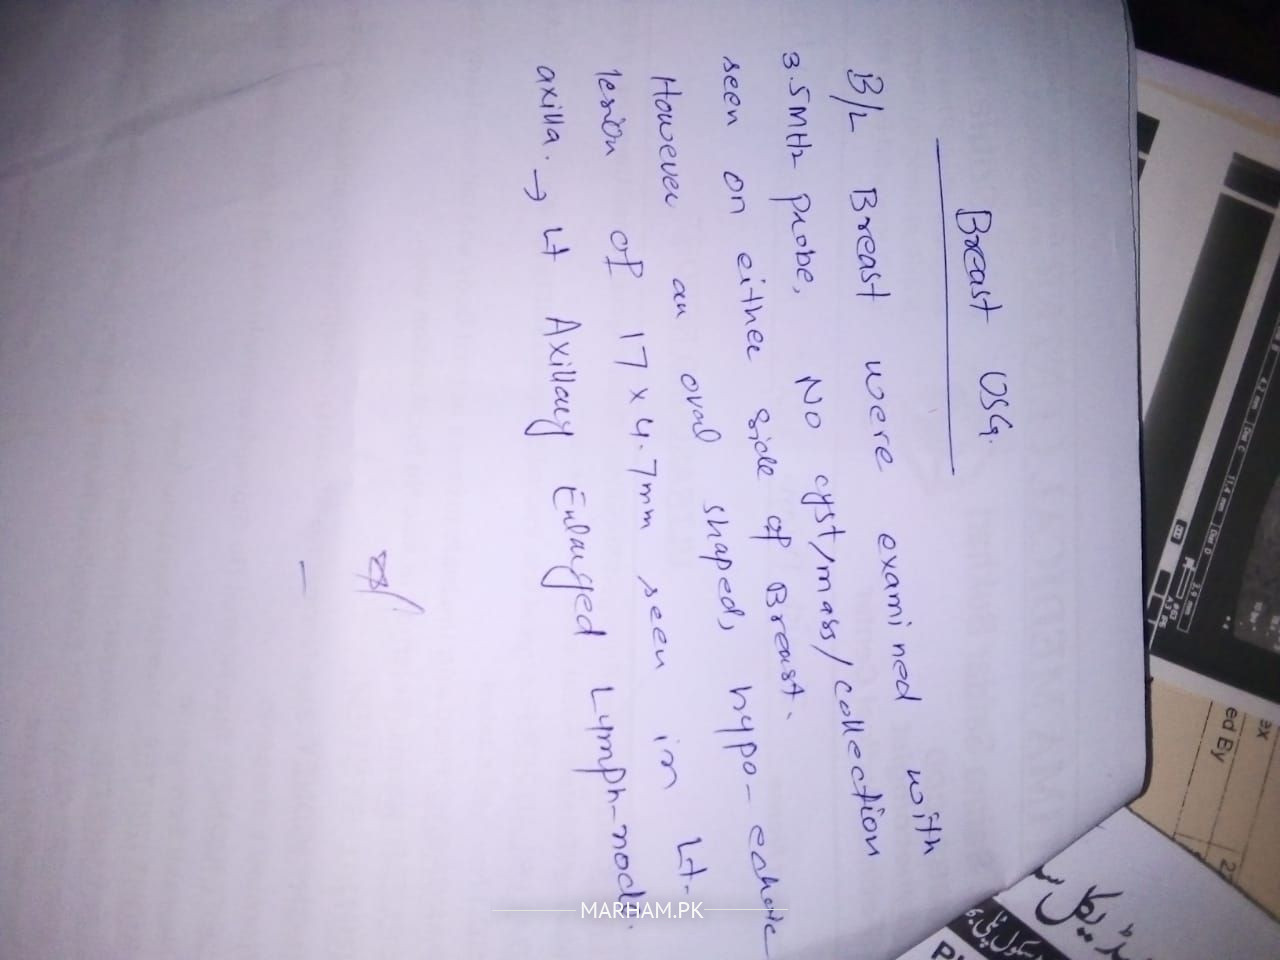 Breast USG.
B/L Breast were examined with
3.5MHz probe, No cyst/mass/collection
seen on either side of Breast.
However an oval shaped, hypo-echoic
lesion of 17 x 4.7mm seen in Lt.
axilla. → Lt Axillary Enlarged Lymph-node.
MARHAM.PK
4.2 mm
Dist C
11.4 mm
Dist D
3.9 mm
ed By
ex